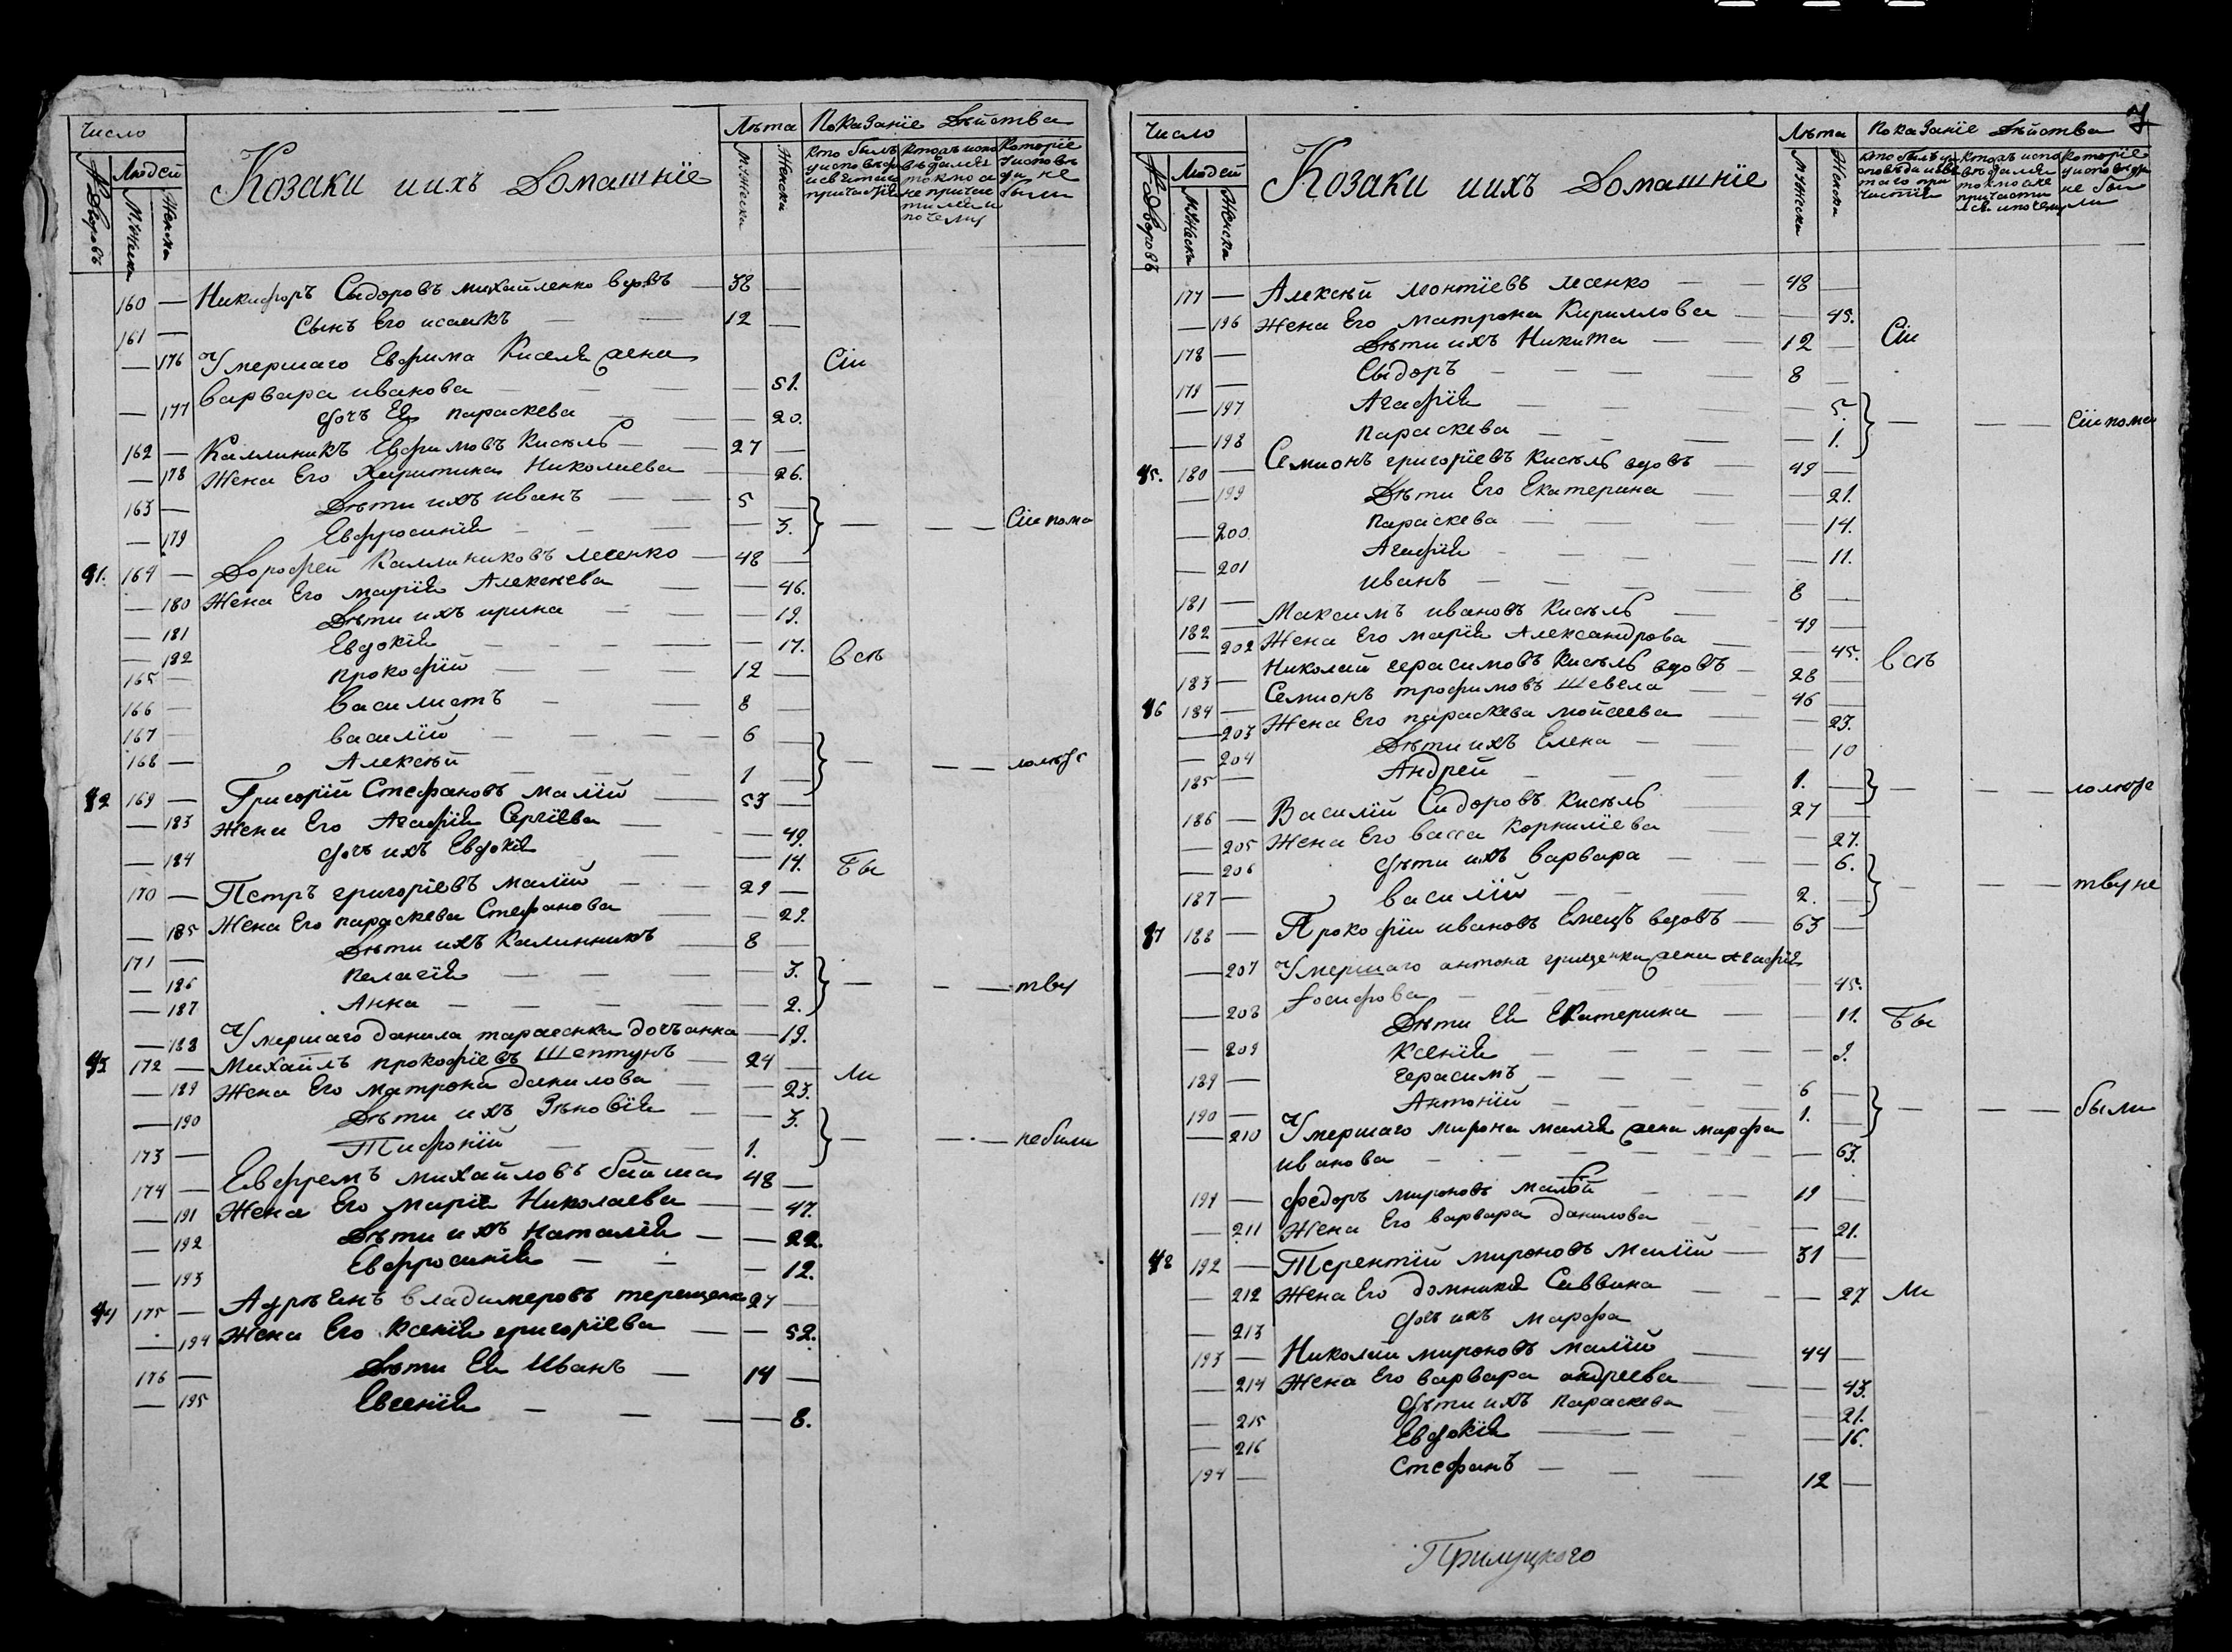 Число
Лѣта Показанїе Дѣйства
№ Дворовъ
Людей
Мужеска
Женска
Козаки иихъ Домашнїе
Мужеска
Женска
кто былъ уисповѣди исвятаго причастїя
ктожъ испо вѣдался токмо а не причас тился и почему
Которїе уисповѣ ди не были
160 — Никифоръ Сыдоровъ михайленко вдовъ — 38 —
161 — Сынъ Его исаакъ — — 12 —
— 176 Умершаго Евфима Киселя жена Сіи
варвара иванова — — — 51.
— 177 дочъ Ея параскева — — — 20.
162 — Каллиникъ Евфимовъ Кисѣль — 27 —
— 178 Жена Его Харитина Николаева — — 26.
163 — Дѣти ихъ иванъ — — 5 —
— 179 Евфросинїя — — — — 3. } — — — Сіи пома
41. 164 — Дорофей Каллиниковъ лесенко — 48 —
— 180 Жена Его марїя Алексеева — — 46.
— 181 Дѣти ихъ ирина — — — 19.
— 182 Евдокїя — — — — — 17. всѣ
165 — Прокофїй — — — 12 —
166 — василистъ — — 8 —
167 — василїй — — — — 6 —
168 — Алексѣй — — — 1 — } — — — лолюдс
42 169 — Григорїй Стефановъ малїй — 53 —
— 183 Жена Его Агафїя Сергїева — — 49.
— 184 дочъ ихъ Евдокїя — — — 14. бы
170 — Петръ григорїевъ малїй — — 29 —
— 185 Жена Его параскева Стефанова — — 29.
171 — Дѣти ихъ Каллиникъ — 8 —
— 186 пелагїя — — — — 3.
— 187 Анна — — — — — 2. } — — — тву
— 188 Умершаго данила тарасенка дочъ анна — 19.
43 172 — Михаилъ прокофїевъ Шептунъ — 24 — ли
— 189 Жена Его матрона данилова — — 23.
— 190 Дѣти ихъ Зѣновїя — — 3.
173 — Тифонїй — — 1. } — — — небыли
174 — Евфремъ михайловъ байша 48 —
— 191 Жена Его Марїя Николаева — — 47.
— 192 Дѣти ихъ Наталїя — — 22.
— 193 Евфросинїя — — — 12.
44 175 — владимеровъ терещенко 27 —
— 194 Жена Его Ксенїя григорїева — — 52.
176 — Дѣти Ея Иванъ — 14 —
— 195 Евгенїя — — — — 8.
7
Число
Лѣта Показанїе Дѣйства
№ Дворовъ
Людей
Мужеска
Женска
Козаки иихъ Домашнїе
Мужеска
Женска
кто былъ уи сповѣди исвя таго при частїя
ктожъ испо вѣдался токмо не причасти лся ипочему
которїе уисповѣди не бы ли
177 — Алексѣй Леонтїевъ лесенко — — 48 —
— 196 Жена Его матрона Кириллова — — 45.
178 — Дѣти ихъ Никита — — 12 — Сіи
179 — Сыдоръ — — — — 8 —
— 197 Агафїя — — — — 5.
— 198 Параскева — — — — 1. } — — — Сіи пома
45. 180 — Семионъ григорїевъ Кисѣль вдовъ — 49 —
— 199 Дѣти Его Екатерина — — 21.
— 200 параскева — — — — 14.
— 201 Агафїя — — — — 11.
181 — иванъ — — — — 8 —
182 — Максимъ ивановъ Кисѣль — 49 —
— 202 Жена Его марїя Александрова — — 45. всѣ
183 — Николай герасимовъ Кисѣль вдовъ — 28 —
46 184 — Семионъ трофимовъ Шевела — — 46 —
— 203 Жена Его параскева мойсеева — — 23.
— 204 Дѣти ихъ Елена — — — 10
185 — Андрей — — — 1. — } — — — лолюдс
186 — Василїй Сидоровъ Кисѣль — 27 —
— 205 Жена Его васса Корнилїева — — 27.
— 206 дѣти ихъ варвара — — — 6.
187 — василїй — — — — 2. — } — — — тву не
47 188 — Прокофїй ивановъ Емецъ вдовъ — 63 —
— 207 Умершаго антона грищенка жена Агафїя
Іосифова — — — — — 45.
— 208 Дѣти Ея Екатерина — — 11. бы
— 209 Ксенїя — — — — — 9.
189 — герасимъ — — — — 6 —
190 — Антонїй — — — — 1. — } — — — были
— 210 Умершаго мирона малїя жена марфа
иванова — — — — — — 63.
191 — федоръ мироновъ малїй — — 19 —
— 211 Жена Его варвара данилова — — 21.
48 192 — Терентїй мироновъ малїй — 31 —
— 212 Жена Его домникїя Саввина — — — 27 ли
— 213 дочъ ихъ марфа
193 — Николай мироновъ малїй — 44 —
— 214 Жена Его варвара андреева — — — 43.
— 215 дѣти ихъ параскева — — 21.
— 216 Евдокїя — — — — 16.
194 — Стефанъ — — — 12 —
Прилуцкого